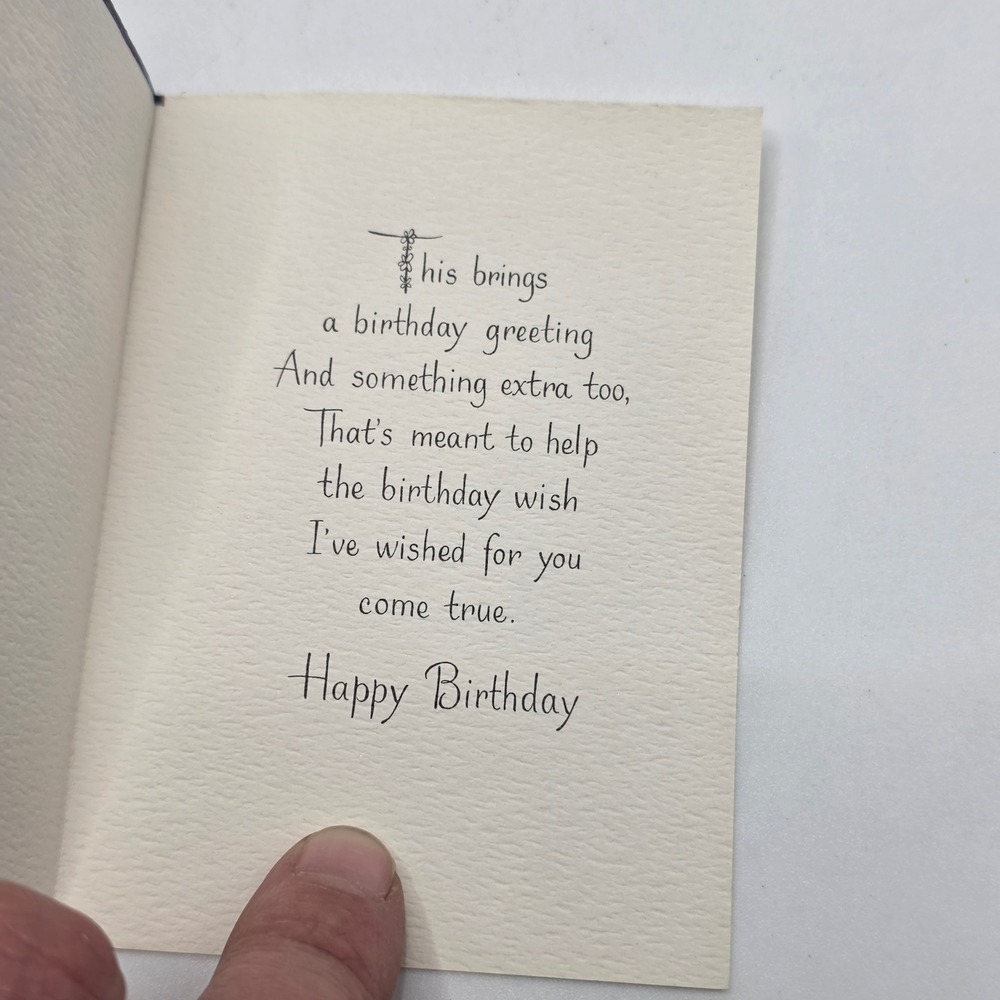 This brings
a birthday greeting
And something extra too,
That's meant to help
the birthday wish
I've wished for you
come true.
Happy Birthday